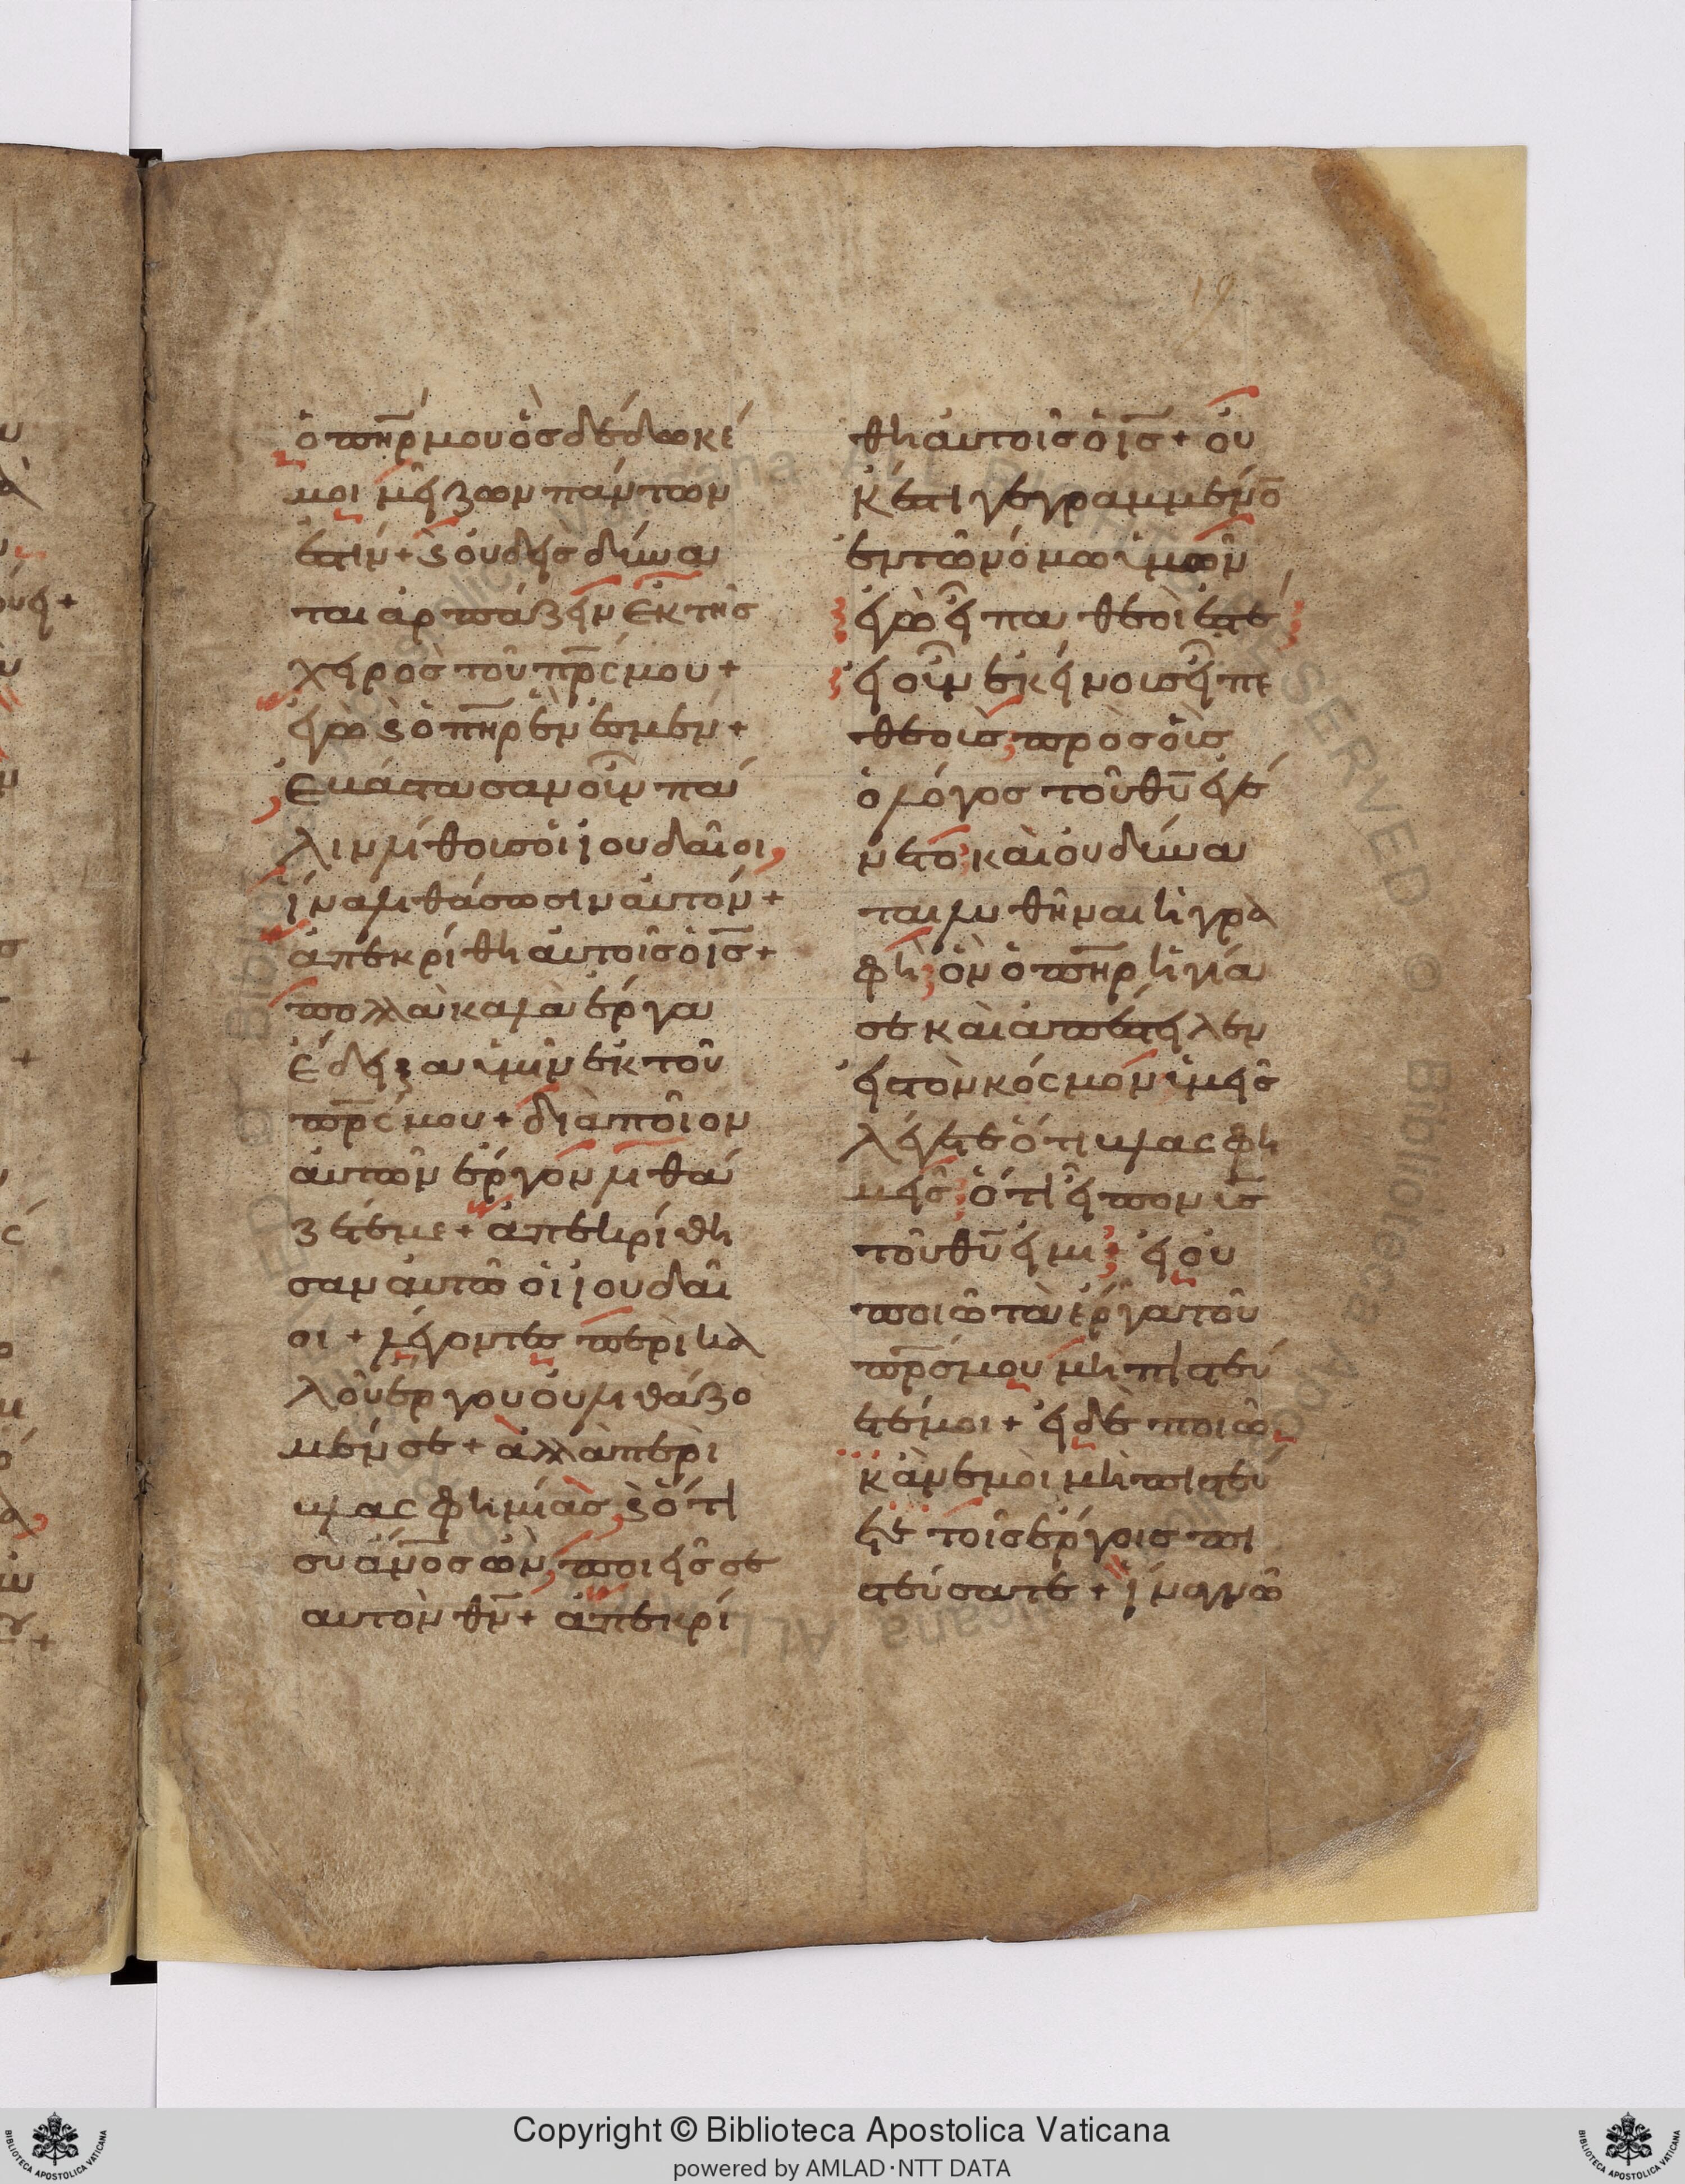 19
ὁ πη̅ρ μου ὃσ δέδωκέ
μοι μεῖζων πάντων
ἐστιν + ϗ οὐδεὶσ δύνα
ται ἁρπάζειν ἐκ τῆσ
χειρὸσ τοῦ πρ̅ς μου +
ἐγὼ ϗ ὁ πη̅ρ ἕν ἐσμεν +
Ἐβάστασαν οὖν πά
λιν λίθουσ οἱ ἰουδαῖοι,
ἵνα λιθάσωσιν αὐτόν +
ἀπεκρίθη αὐτοῖσ ὁ ι̅σ +
πολλὰ καλὰ ἔργα
ἔδειξα ὑμῖν ἐκ τοῦ
πρ̅ς μου + διὰ ποῖον
αὐτῶν ἔργον λιθά
ζετέ με + ἀπεκρίθη
σαν αὐτῶ οἱ ἰουδαῖ
οι + λέγοντεσ περὶ κα
λοῦ ἔργου οὐ λιθάζο
μέν σε + ἀλλὰ περὶ
βλασφημίασ, ϗ ὅτι
σὺ αν̅οσ ὢν, ποιεῖσ σε
αυτὸν θν̅ + ἀπεκρί
θη αὐτοῖσ ὁ ι̅σ + οὐ
κ ἔστι γεγραμμένο̅
ἐν τῶ νόμω ὑμῶν
ἐγὼ εἶπα θεοί ἐστέ
εἰ οὖν ἐκείνουσ εἶπε
θεοὺσ, πρὸσ οὓσ
ὁ λόγοσ τοῦ θυ̅ ἐγέ
νετο, καὶ οὐ δύνα
ται λυθῆναι ἡ γρα
φὴ, ὃν ὁ πη̅ρ ἡγία
σε καὶ ἀπέστειλεν
εἰσ τὸν κόσμον ὑμεῖσ
λέγετε ὅτι βλασφη
μεῖσ, ὅτι εἶπον υ̅σ
τοῦ θυ̅ εἰμι + εἰ οὐ
ποιῶ τὰ ἔργα τοῦ
πρ̅σ μου μὴ πιστεύ
ετέ μοι + εἰ δὲ ποιῶ
κἂν ἐμοὶ μὴ πιστεύ
ητε τοῖσ ἔργοισ πι
στεύσατε + ἵνα γνῶ
Copyright © Biblioteca Apostolica Vaticana
powered by AMLAD·NTT DATA